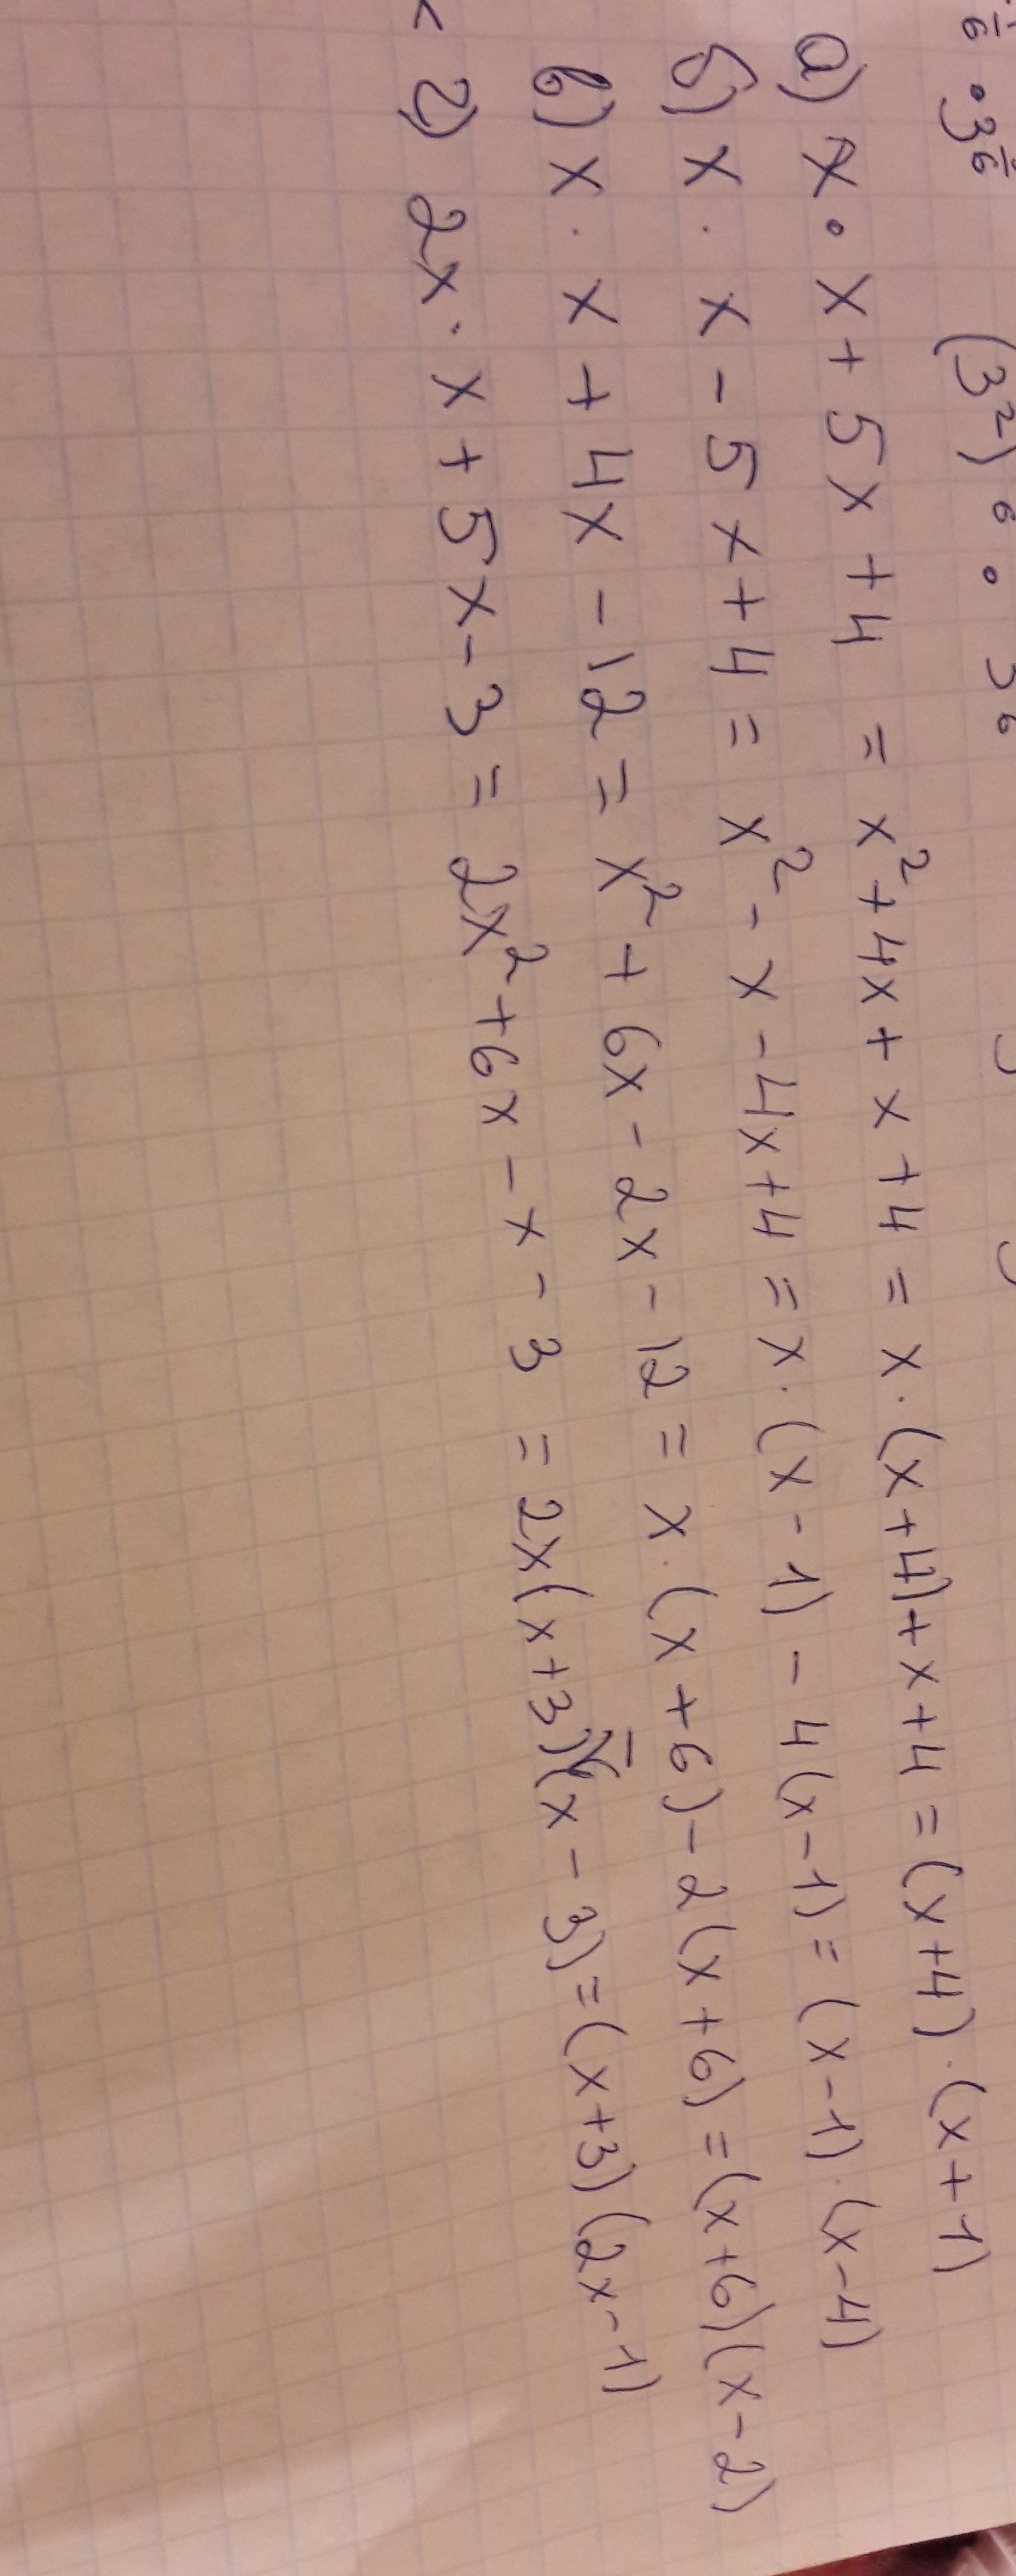 (3²)
а) x · x + 5x + 4 = x² + 4x + x + 4 = x · (x + 4) + x + 4 = (x + 4) · (x + 1)
б) x · x - 5x + 4 = x² - x - 4x + 4 = x · (x - 1) - 4(x - 1) = (x - 1) · (x - 4)
в) x · x + 4x - 12 = x² + 6x - 2x - 12 = x · (x + 6) - 2(x + 6) = (x + 6)(x - 2)
г) 2x · x + 5x - 3 = 2x² + 6x - x - 3 = 2x(x + 3) - (x - 3) = (x + 3)(2x - 1)